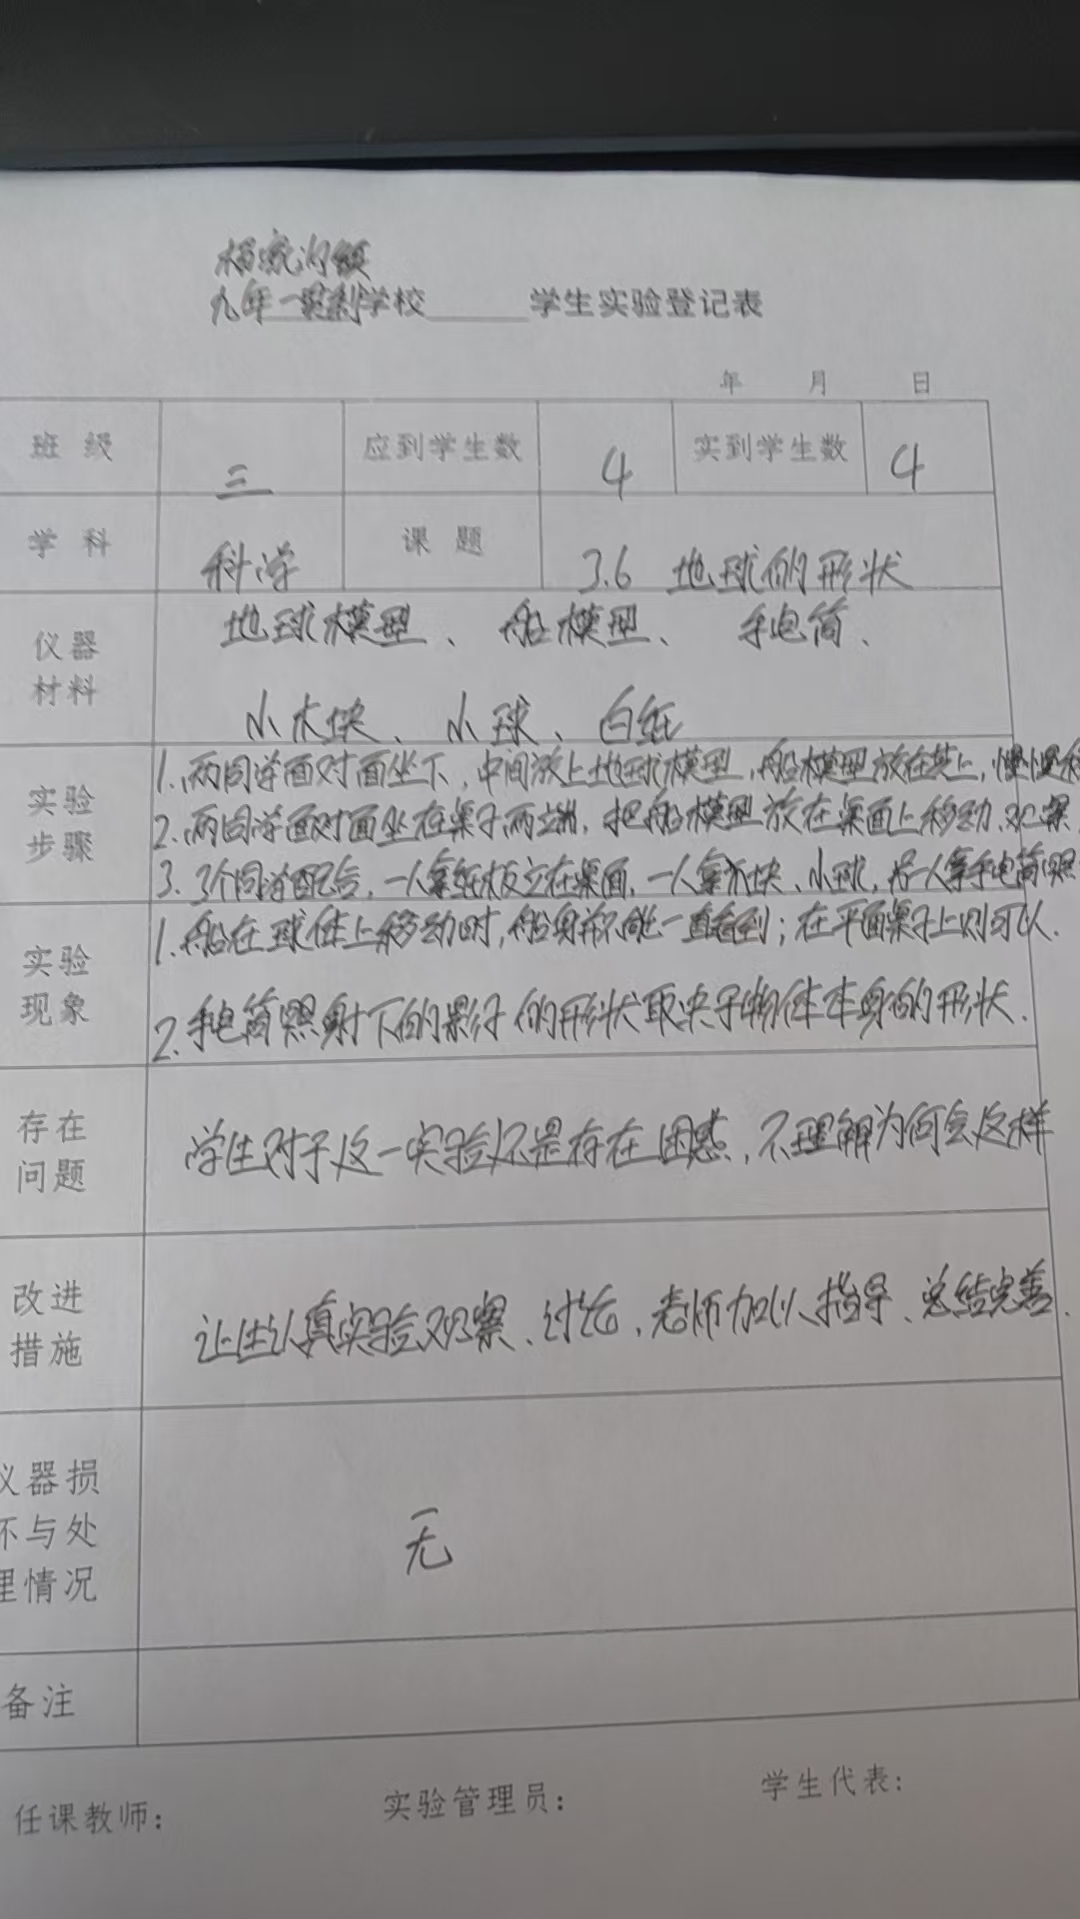 杨家沟镇
九年一贯制学校______学生实验登记表
年 月 日
班 级 三 应到学生数 4 实到学生数 4
学 科 科学 课 题 3.6 地球的形状
仪器材料 地球模型、船模型、手电筒、
小木块、小球、白纸
实验步骤 1.两同学面对面坐下,中间放上地球模型,船模型放在其上,慢慢移
2.两同学面对面坐在桌子两端,把船模型放在桌面上移动,观察
3.3个同学配合,一人拿纸板立在桌面,一人拿木块、小球,另一人拿手电筒照
实验现象 1.船在球体上移动时,船身都不能一直看到;在平面桌子上则可以.
2.手电筒照射下的影子的形状取决于物体本身的形状.
存在问题 学生对于这一实验还是存在困惑,不理解为何会这样
改进措施 让生认真实验观察、讨论,老师加以指导、总结完善.
仪器损坏与处理情况 无
备注
任课教师: 实验管理员: 学生代表: